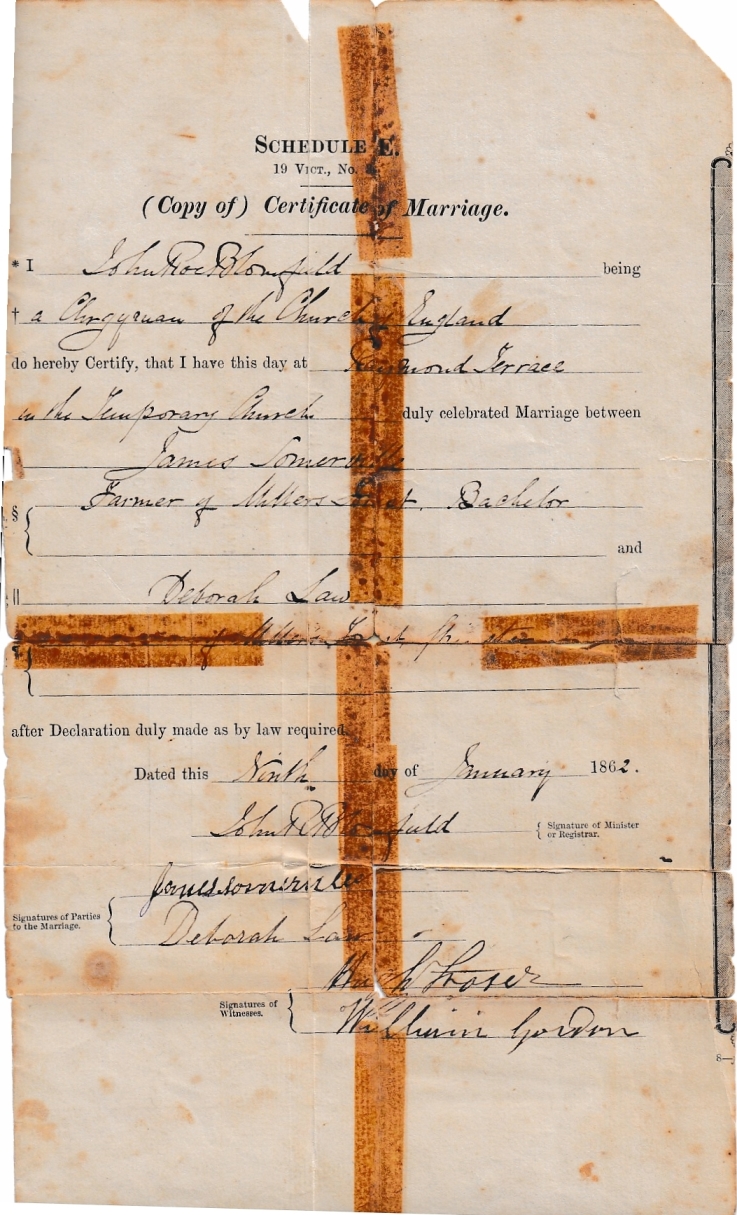 SCHEDULE E.
19 VICT., No.
(Copy of) Certificate of Marriage.
* I John Roe Blomfield being
† a Clergyman of the Church of England
do hereby Certify, that I have this day at Raymond Terrace
in the Temporary Church duly celebrated Marriage between
James Somerville
§ Farmer of Millers Forest. Bachelor
and
|| Deborah Law
of Millers Forest, Spinster
after Declaration duly made as by law required.
Dated this Ninth day of January 1862.
John R Blomfield { Signature of Minister or Registrar.
James Somerville
Signatures of Parties to the Marriage.
Deborah Law
Hugh Fraser
Signatures of Witnesses.
William Gordon
8—